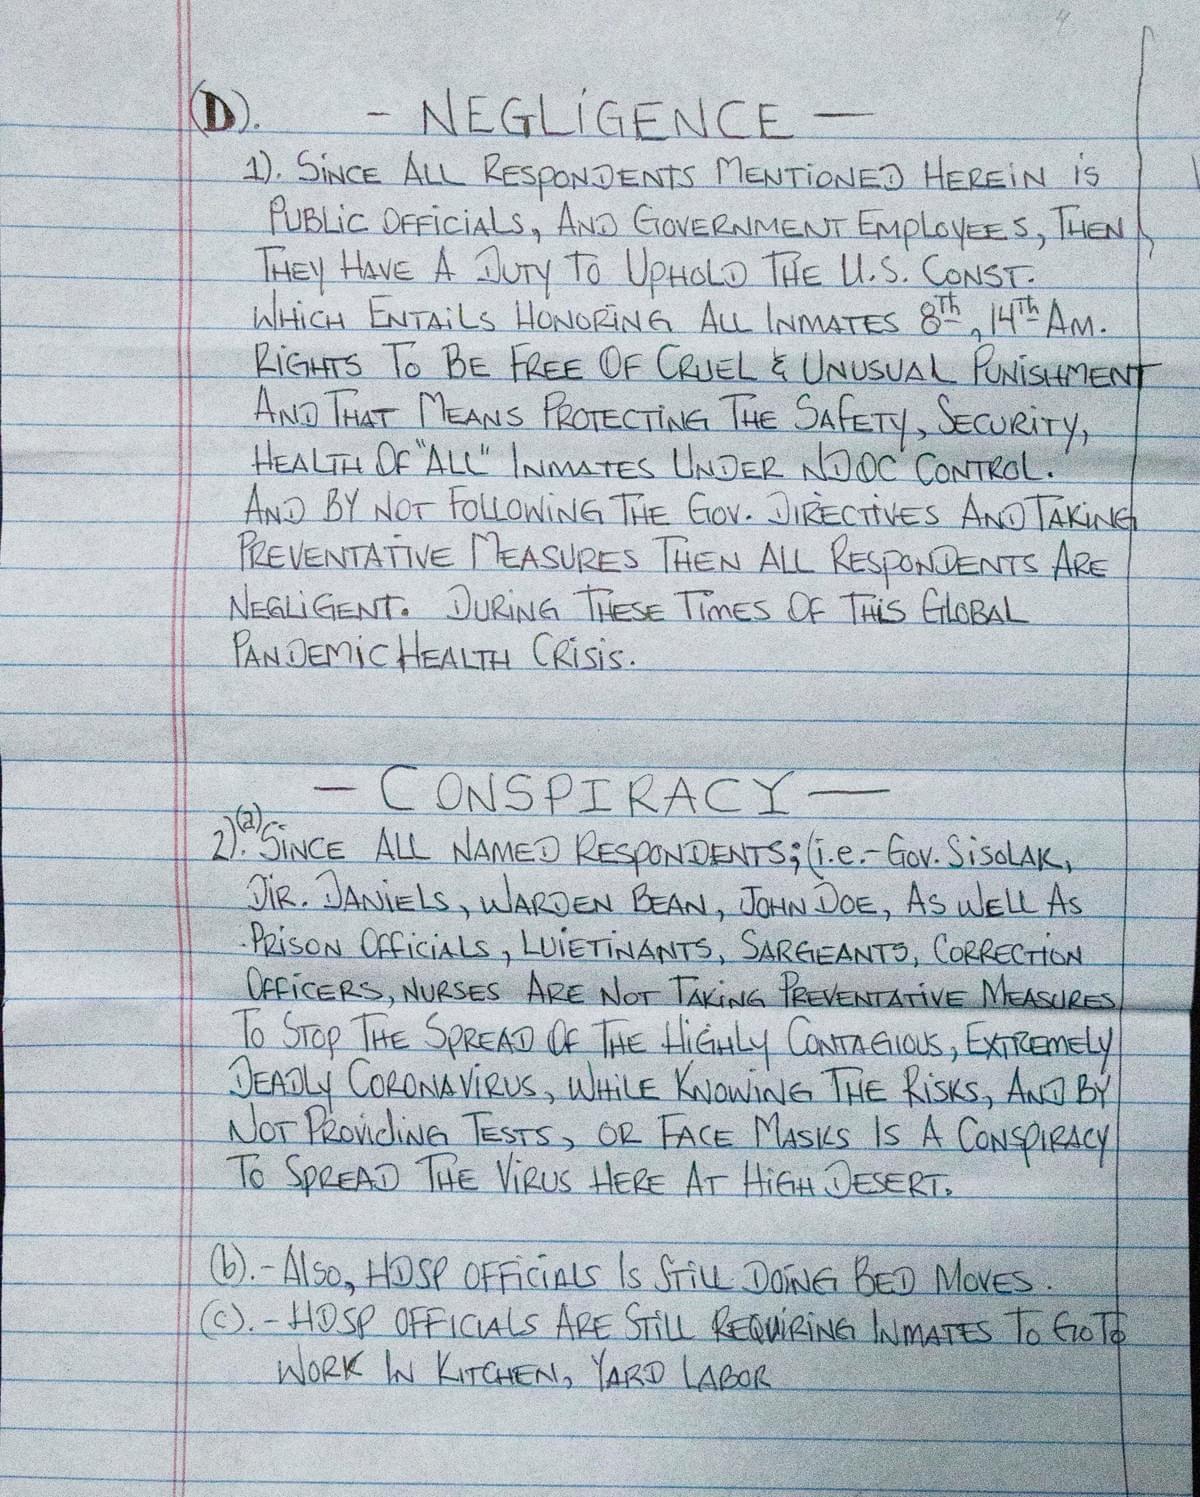 (D). - NEGLIGENCE -
1). SINCE ALL RESPONDENTS MENTIONED HEREIN IS
PUBLIC OFFICIALS, AND GOVERNMENT EMPLOYEES, THEN
THEY HAVE A DUTY TO UPHOLD THE U.S. CONST.
WHICH ENTAILS HONORING ALL INMATES 8TH, 14TH AM.
RIGHTS TO BE FREE OF CRUEL & UNUSUAL PUNISHMENT
AND THAT MEANS PROTECTING THE SAFETY, SECURITY,
HEALTH OF "ALL" INMATES UNDER NDOC CONTROL.
AND BY NOT FOLLOWING THE GOV. DIRECTIVES AND TAKING
PREVENTATIVE MEASURES THEN ALL RESPONDENTS ARE
NEGLIGENT. DURING THESE TIMES OF THIS GLOBAL
PANDEMIC HEALTH CRISIS.
- CONSPIRACY -
2).(a) SINCE ALL NAMED RESPONDENTS; (i.e.- GOV. SISOLAK,
DIR. DANIELS, WARDEN BEAN, JOHN DOE, AS WELL AS
PRISON OFFICIALS, LUIETINANTS, SARGEANTS, CORRECTION
OFFICERS, NURSES ARE NOT TAKING PREVENTATIVE MEASURES
TO STOP THE SPREAD OF THE HIGHLY CONTAGIOUS, EXTREMELY
DEADLY CORONAVIRUS, WHILE KNOWING THE RISKS, AND BY
NOT PROVIDING TESTS, OR FACE MASKS IS A CONSPIRACY
TO SPREAD THE VIRUS HERE AT HIGH DESERT.
(b).- ALSO, HDSP OFFICIALS IS STILL DOING BED MOVES.
(c).- HDSP OFFICIALS ARE STILL REQUIRING INMATES TO GO TO
WORK IN KITCHEN, YARD LABOR